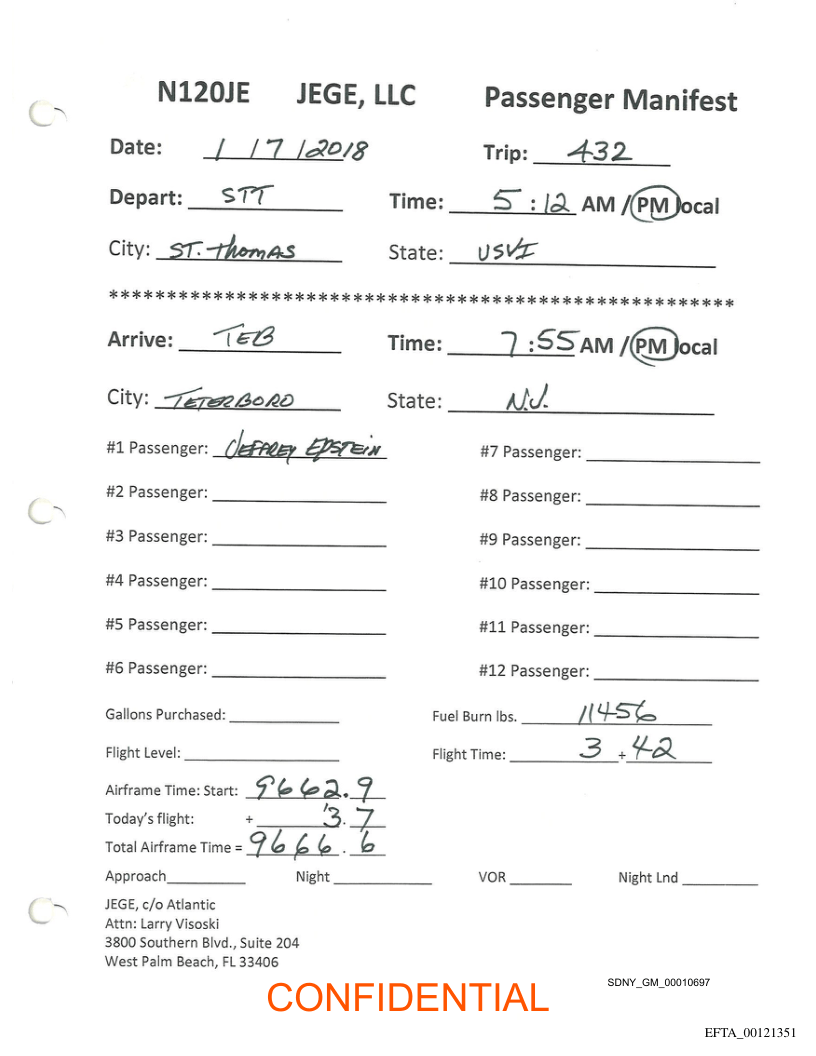 N120JE JEGE, LLC Passenger Manifest
Date: 1/7/2018 Trip: 432
Depart: STT Time: 5:12 AM/PM local
City: ST. Thomas State: USVI
*******************************************************
Arrive: TEB Time: 7:55 AM/PM local
City: TETERBORO State: N.J.
#1 Passenger: JEFFREY EPSTEIN #7 Passenger:
#2 Passenger: #8 Passenger:
#3 Passenger: #9 Passenger:
#4 Passenger: #10 Passenger:
#5 Passenger: #11 Passenger:
#6 Passenger: #12 Passenger:
Gallons Purchased: Fuel Burn lbs. 11456
Flight Level: Flight Time: 3 + 42
Airframe Time: Start: 9662.9
Today's flight: + 3.7
Total Airframe Time = 9666.6
Approach Night VOR Night Lnd
JEGE, c/o Atlantic
Attn: Larry Visoski
3800 Southern Blvd., Suite 204
West Palm Beach, FL 33406
CONFIDENTIAL
SDNY_GM_00010697
EFTA_00121351